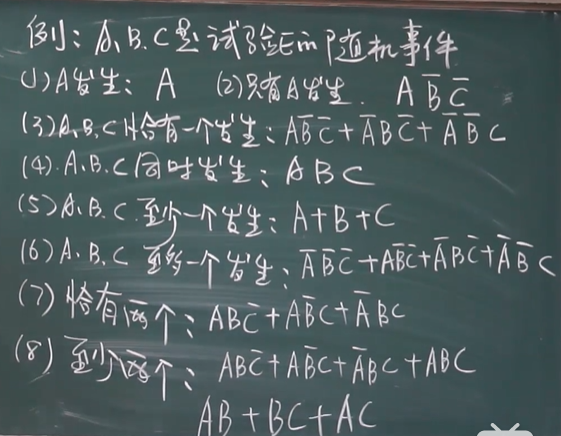 例：A、B、C是试验E的随机事件
(1) A发生：A (2) 只有A发生. A B̅ C̅
(3) A、B、C恰有一个发生：AB̅C̅+A̅BC̅+A̅B̅C
(4). A、B、C同时发生：ABC
(5) A、B、C.至少一个发生：A+B+C
(6) A、B、C 至多一个发生：A̅B̅C̅+AB̅C̅+A̅BC̅+A̅B̅C
(7) 恰有两个：ABC̅+AB̅C+A̅BC
(8) 至少两个：ABC̅+AB̅C+A̅BC+ABC
AB+BC+AC